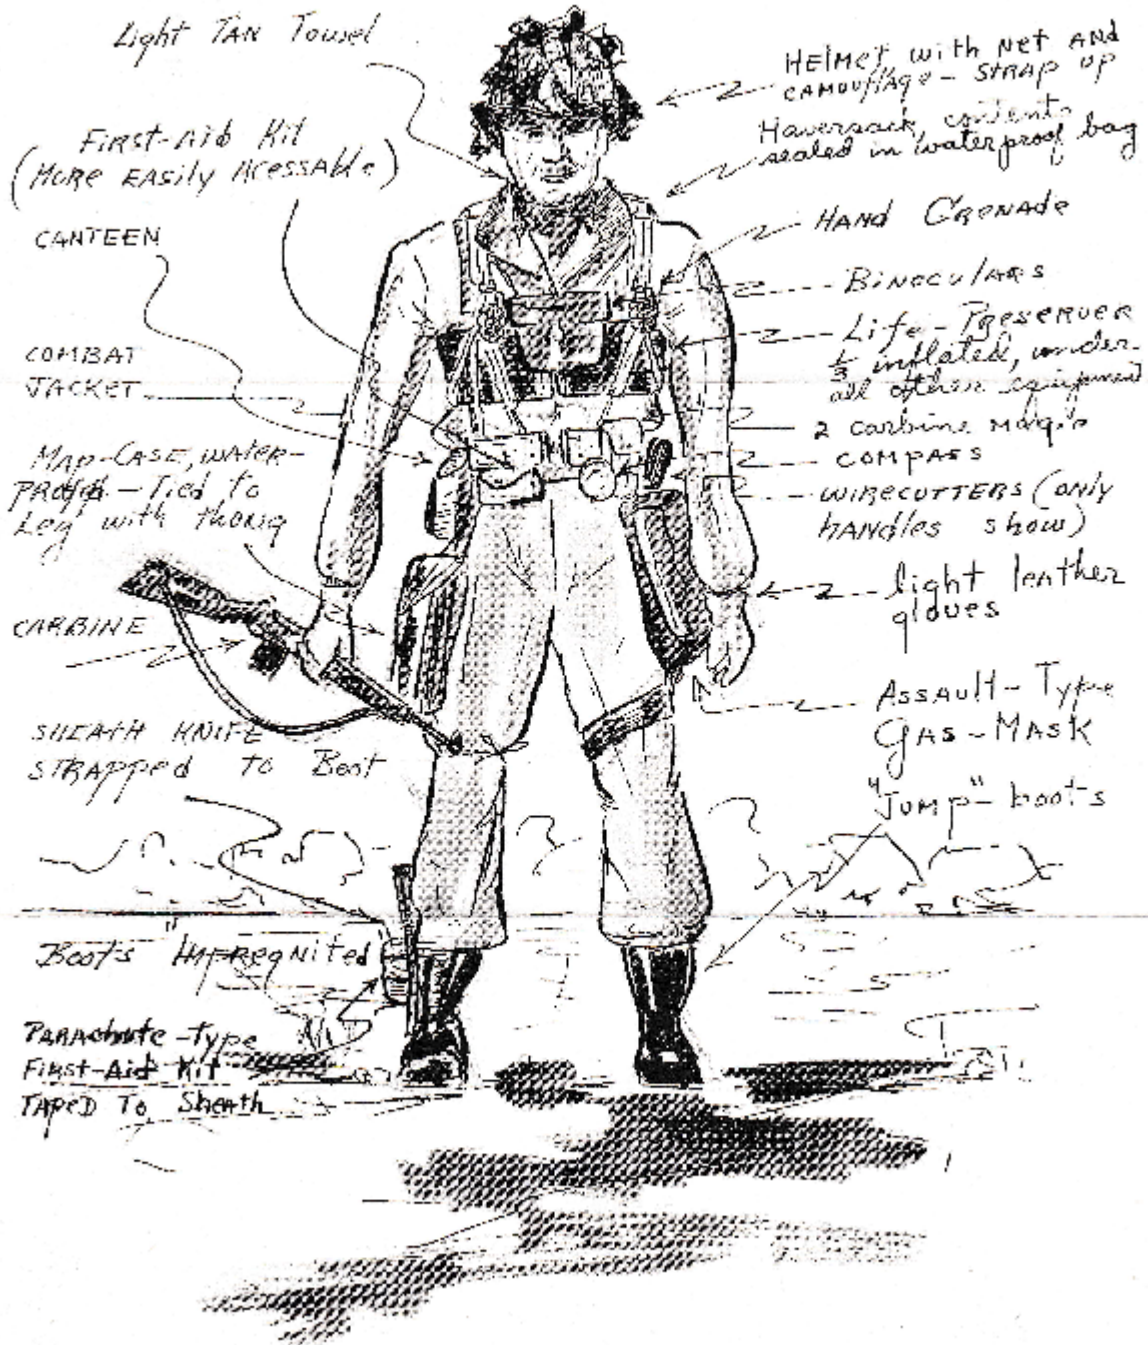 Light TAN Towel
First-Aid Kit
(MORE EASILY ACESSABLE)
CANTEEN
COMBAT
JACKET
MAP-CASE, WATER-
PROOF - Tied to
Leg with thong
CARBINE
SHEATH KNIFE
STRAPPED TO Boot
Boots "IMPREGNITED
PARAchute-type
First-Aid Kit
TAPED To Sheath
HELMET with NET AND
CAMOUFLAGE - STRAP UP
Haversack, contents
sealed in waterproof bag
HAND GRENADE
BINOCULARS
Life-PRESERVER
1/3 inflated, under-
all other equipment
2 carbine mags
COMPASS
WIRECUTTERS (only
HANDLES show)
light leather
gloves
ASSAULT-TYPE
GAS-MASK
"JUMP"-boots